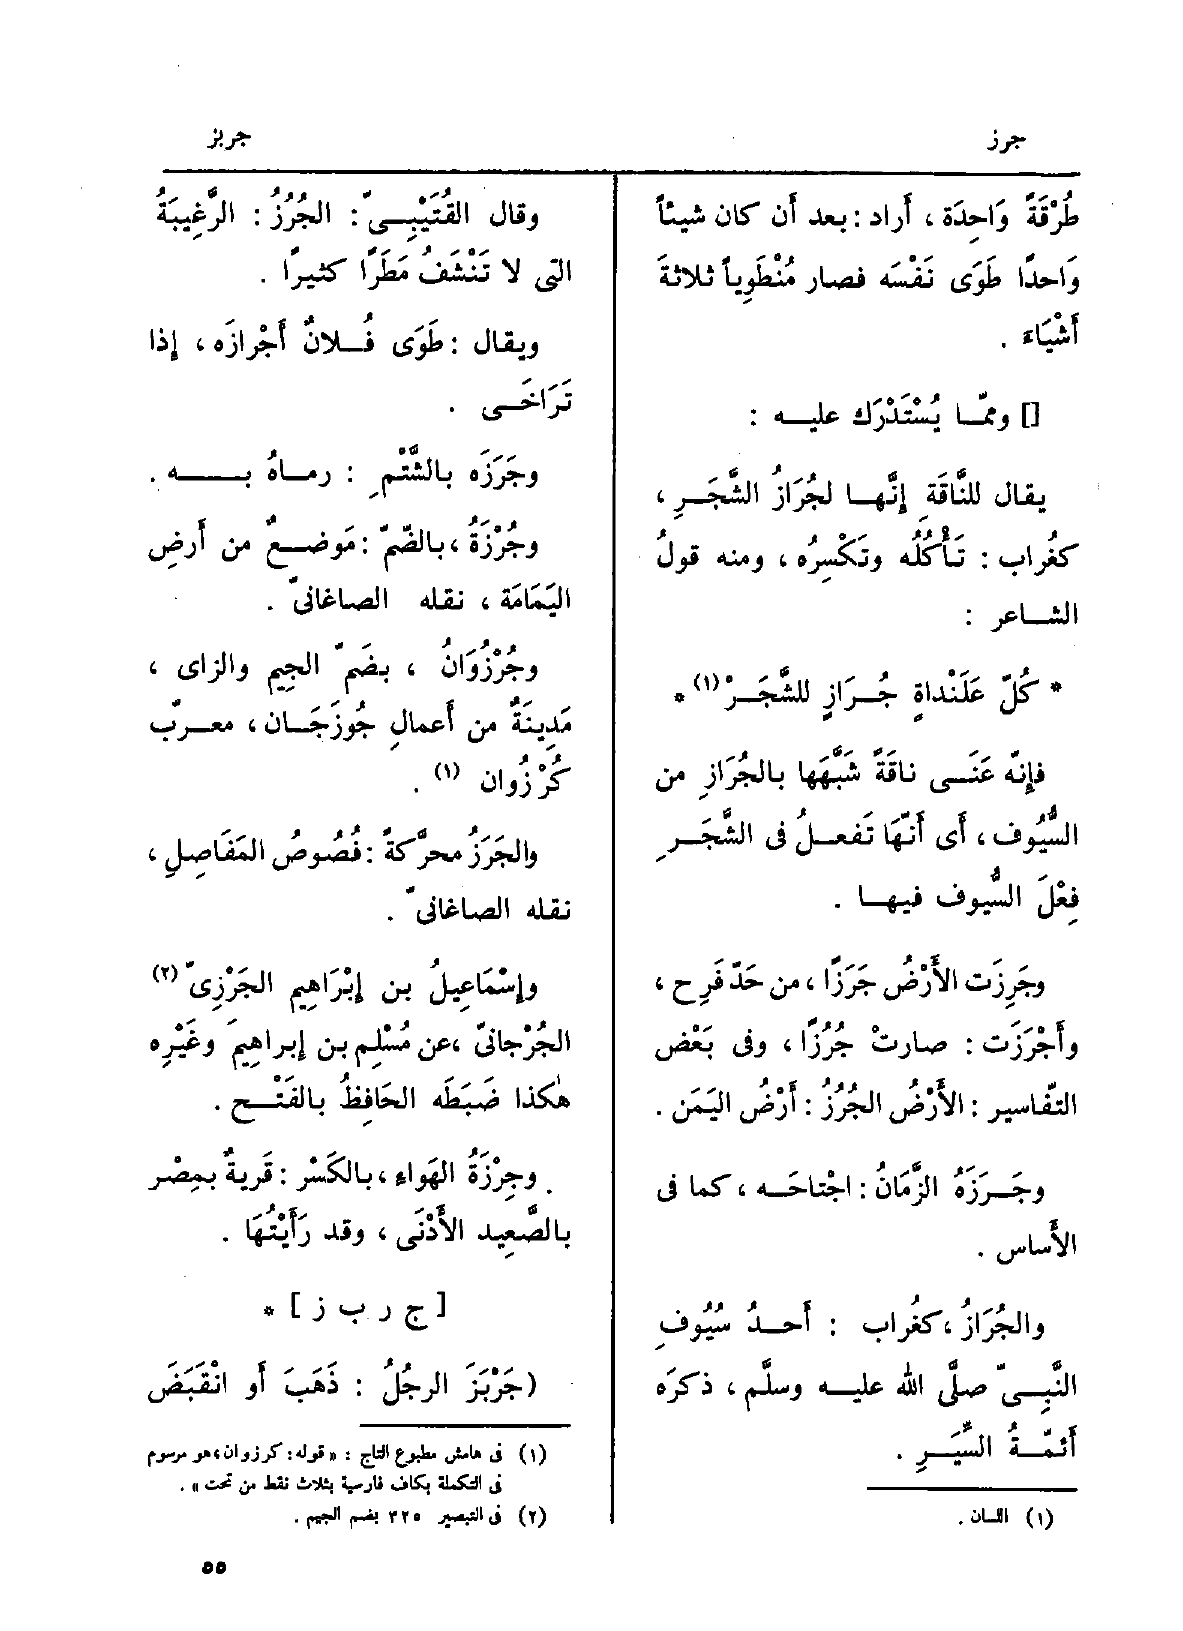 جرز
جربز
طُرْقَةً وَاحِدَة ، أَراد : بعد أَن كان شيئاً
وَاحدًا طَوَى نَفْسَه فصار مُنْطَوِياً ثلاثةَ
أَشْيَاءَ .
[] وممّا يُسْتَدْرَك عليه :
يقال للنَّاقةِ إِنَّها لجُرَازُ الشَّجَرِ ،
كغُراب : تَأْكُلُه وتَكْسِرُه ، ومنه قولُ
الشاعر :
* كُلّ عَلَنْداةٍ جُرَازٍ للشَّجَرْ (١) *
فإِنّه عَنَى ناقةً شَبَّهَها بالجُرَازِ من
السُّيُوف ، أَى أَنَّهَا تَفعلُ فى الشَّجَرِ
فِعْلَ السُّيوف فيها .
وجَرِزَت الأَرْضُ جَرَزًا ، من حَدّ فَرِح ،
وأَجْرَزَت : صارتْ جُرُزًا ، وفى بَعْض
التّفاسير : الأَرْضُ الجُرُزُ : أَرْضُ اليَمَن .
وجَرَزَهُ الزَّمَانُ : اجْتاحَه ، كما فى
الأَساس .
والجُرَازُ ، كغُراب : أَحدُ سُيُوفِ
النَّبِىّ صلَّى الله عليه وسلَّم ، ذكرَه
أَئمّةُ السِّيَرِ .
(١) اللسان .
وقال القُتَيْبِىّ : الجُرُزُ : الرَّغِيبَةُ
التى لا تَنْشَفُ مَطَرًا كثيرًا .
ويقال : طَوَى فُلانٌ أَجْرازَه ، إذا
تَرَاخَى .
وجَرَزَه بالشَّتْمِ : رماهُ به .
وجُرْزَةُ ، بالضّمّ : مَوضعٌ من أَرضِ
اليَمَامَة ، نقله الصاغانىّ .
وجُرْزُوَانُ ، بضَمّ الجيم والزاى ،
مَدِينَةٌ من أَعمالِ جُوزَجَان ، معرّب
كُرْزُوان (١) .
والجَرَزُ محرَّكةً : فُصُوصُ المَفَاصِلِ ،
نقله الصاغانىّ .
وإِسْمَاعِيلُ بن إِبْرَاهِيم الجَرْزِىّ (٢)
الجُرْجانىّ ، عن مُسْلِم بن إِبراهيمَ وغَيْرِه
هكذا ضَبَطَه الحَافِظُ بالفَتْح .
وجِرْزَةُ الهَواءِ ، بالكَسْر : قَريةٌ بمِصْر
بالصَّعِيد الأَدْنَى ، وقد رَأَيْتُهَا .
[ ج ر ب ز ] *
(جَرْبَزَ الرجلُ : ذَهَبَ أَو انْقَبَضَ
(١) فى هامش مطبوع التاج : « قوله : كرزوان ، هو مرسوم
فى التكملة بكاف فارسية بثلاث نقط من تحت » .
(٢) فى التبصير ٣٢٥ بضم الجيم .
٥٥